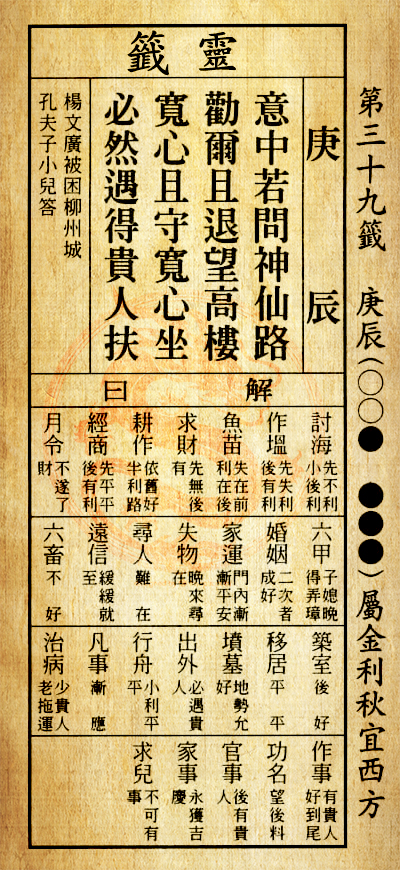 第三十九籤　庚辰(○○●　●●●)屬金利秋宜西方
靈籤
庚辰
意中若問神仙路
勸爾且退望高樓
寬心且守寬心坐
必然遇得貴人扶
楊文廣被困柳州城
孔夫子小兒答
解曰
討海 先不利小後利
作塭 先失利後有利
魚苗 失在前利在後
求財 先無後有
耕作 依舊好半利路
經商 先平平後有利
月令 不遂了財
六甲 子媳晚得弄璋
婚姻 二次者成好
家運 門內漸漸平安
失物 晚來尋在
尋人 難在
遠信 緩緩就至
六畜 不好
築室 後好
移居 平平
墳墓 地勢允好
出外 必遇貴人
行舟 小利平平
凡事 漸應
治病 少貴人老拖運
作事 有貴人好到尾
功名 望後料
官事 後有貴人
家事 永獲吉慶
求兒 不可有事